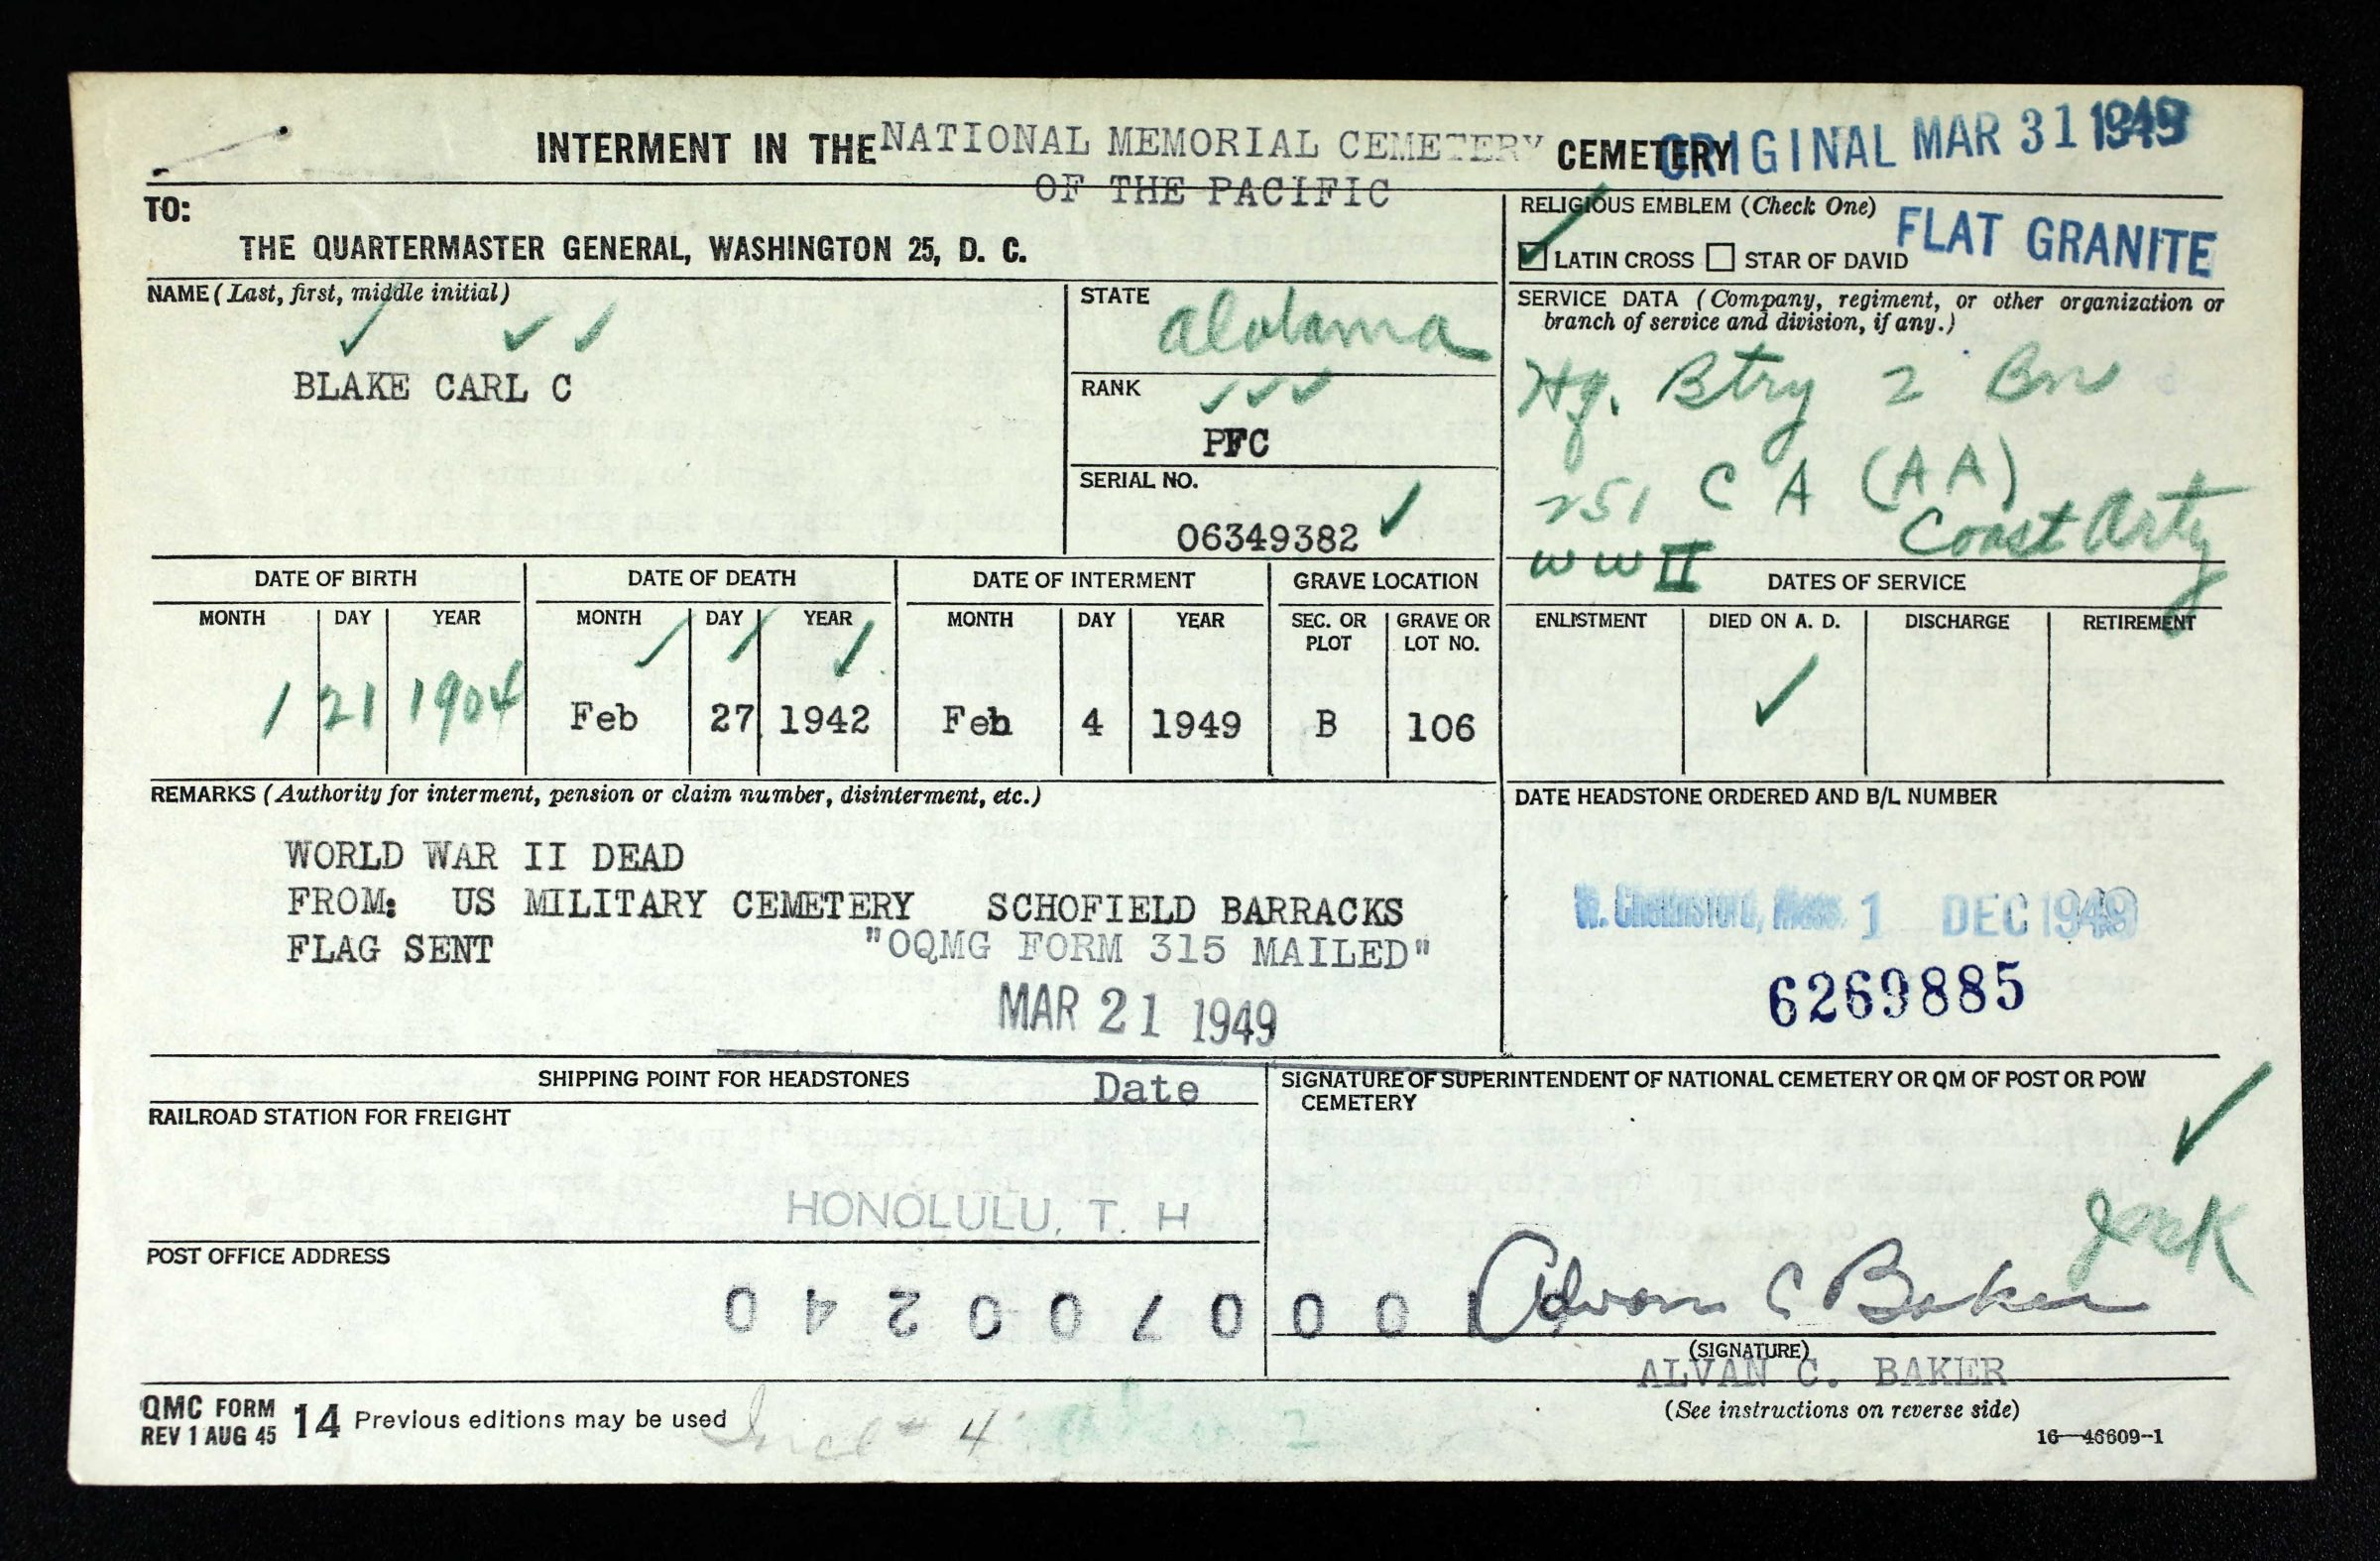 INTERMENT IN THE NATIONAL MEMORIAL CEMETERY CEMETERY ORIGINAL MAR 31 1949
OF THE PACIFIC
TO:
THE QUARTERMASTER GENERAL, WASHINGTON 25, D. C.
RELIGIOUS EMBLEM (Check One)
LATIN CROSS STAR OF DAVID
FLAT GRANITE
NAME (Last, first, middle initial)
BLAKE CARL C
STATE
Alabama
RANK
PFC
SERIAL NO.
06349382
SERVICE DATA (Company, regiment, or other organization or
branch of service and division, if any.)
Hq. Btry 2 Bn
251 C A (A A)
Coast Arty
WW II
DATE OF BIRTH
MONTH DAY YEAR
1 21 1904
DATE OF DEATH
MONTH DAY YEAR
Feb 27 1942
DATE OF INTERMENT
MONTH DAY YEAR
Feb 4 1949
GRAVE LOCATION
SEC. OR PLOT
GRAVE OR LOT NO.
B 106
DATES OF SERVICE
ENLISTMENT DIED ON A. D. DISCHARGE RETIREMENT
REMARKS (Authority for interment, pension or claim number, disinterment, etc.)
WORLD WAR II DEAD
FROM: US MILITARY CEMETERY SCHOFIELD BARRACKS
FLAG SENT "OQMG FORM 315 MAILED"
MAR 21 1949
Date
DATE HEADSTONE ORDERED AND B/L NUMBER
W. Chelmsford, Mass. 1 DEC 1949
6269885
SHIPPING POINT FOR HEADSTONES
RAILROAD STATION FOR FREIGHT
HONOLULU, T. H
POST OFFICE ADDRESS
SIGNATURE OF SUPERINTENDENT OF NATIONAL CEMETERY OR QM OF POST OR POW
CEMETERY
Alvan C Baker
(SIGNATURE)
ALVAN C. BAKER
(See instructions on reverse side)
16—46609-1
QMC FORM 14 Previous editions may be used
REV 1 AUG 45
Incl # 4